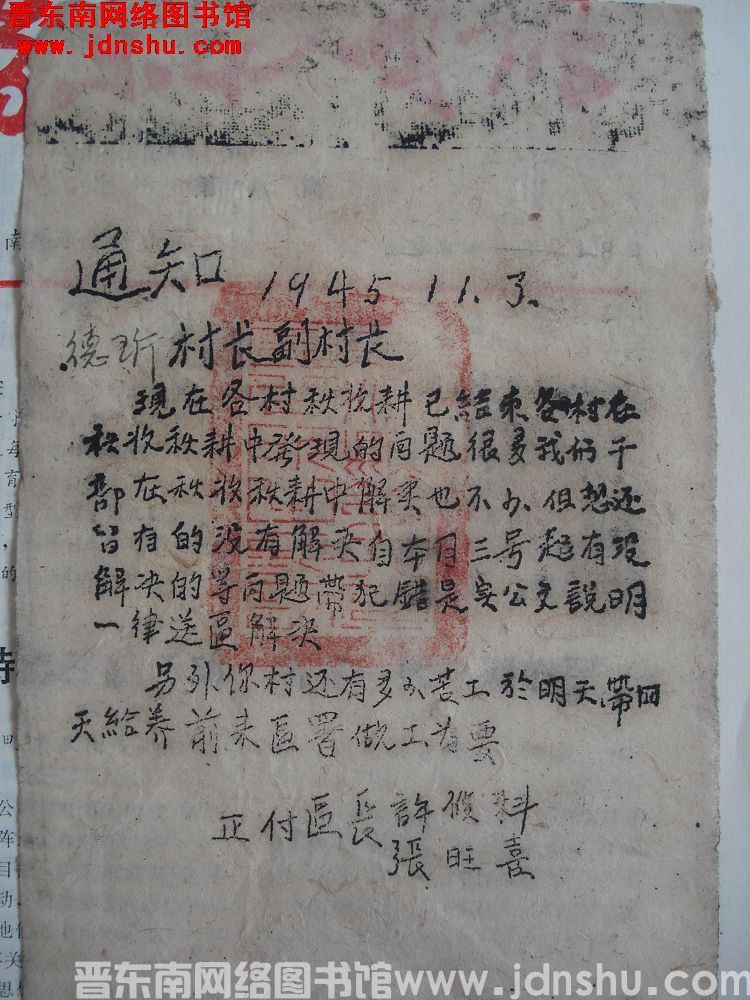 晋东南网络图书馆
www.jdnshu.com
通知 1945 11.3.
德圻 村长副村长
現在各村秋收耕已結束各村在
秋收秋耕中發現的问题很多我们干
部在秋收秋耕中解决也不少但恐还
留有的没有解决自本月三号起有没
解决的等问题帶犯錯是实公文説明
一律送區解决
另外你村还有多少苦工於明天帶四
天給养前来區署做工为要
正付區長許 料
張旺喜
晋东南网络图书馆www.jdnshu.com